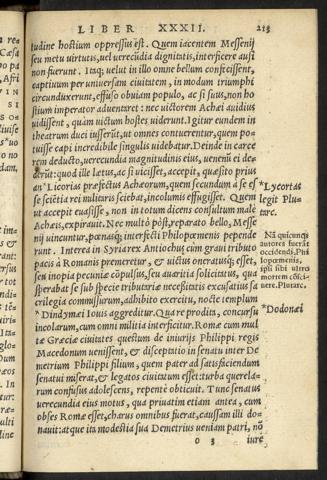 LIBER XXXII. 213
tudine hostium oppressus est. Quem iacentem Messenij
seu metu uirtutis, uel uerecūdia dignitatis, interficere ausi
non fuerunt. Itaq; uelut in illo omne bellum confecissent,
captiuum per uniuersam ciuitatem, in modum triumphi
circunduxerunt, effuso obuiam populo, ac si suus, non ho
stium imperator aduentaret: nec uictorem Achæi auidius
uidissent, quàm uictum hostes uiderunt. Igitur eundem in
theatrum duci iusserūt, ut omnes contuerentur, quem po-
tuisse capi incredibile singulis uidebatur. Deinde in carce
rem deducto, uerecundia magnitudinis eius, uenenū ei de-
derūt: quod ille lætus, ac si uicisset, accepit, quæsito prius
an *Licorias præfectus Achæorum, quem secundum à se es
se scietia rei militaris sciebat, incolumis effugisset. Quem
ut accepit euasisse, non in totum dicens consultum malè
Achæis, expirauit. Nec multò pōst, reparato bello, Messe
nij uincuntur, pœnasq; interfecti Philopœmenis pepende
runt. Interea in Syria rex Antiochus cùm graui tributo
pacis à Romanis premeretur, & uictus oneratusq; esset,
seu inopia pecuniæ cōpulsus, seu auaritia solicitatus, qua
sperabat se sub specie tributariæ necessitatis excusatius sa
crilegia commissurum, adhibito exercitu, nocte templum
*Dindymæi Iouis aggreditur. Qua re prodita, concursu
incolarum, cum omni militia interficitur. Romæ cum mul
tæ Græciæ ciuitates questum de iniurijs Philippi regis
Macedonum uenissent, & disceptatio in senatu inter De
metrium Philippi filium, quem pater ad satisfaciendum
senatui miserat, & legatos ciuitatum esset: turba querela-
rum confusus adolescens, repentè obticuit. Tunc senatus
uerecundia eius motus, qua priuatim etiam antea, cum
obses Romæ esset, charus omnibus fuerat, caussam illi do-
nauit: atque ita modestia sua Demetrius ueniam patri, nō
o 3 iure
*Lycortas
legit Plu-
tarc.
Nā quicunq;
autores fuerāt
occidendi Phi
lopœmenis,
ipsi sibi ultro
mortem cōsci-
uere. Plutarc.
*Dodonæi